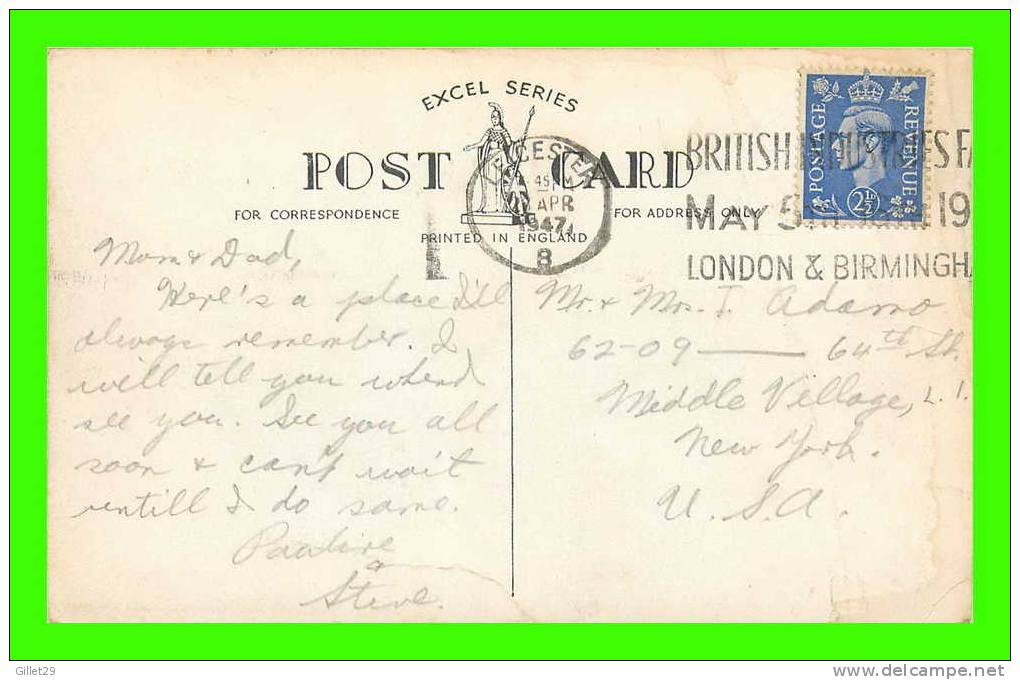 EXCEL SERIES
POST CARD
FOR CORRESPONDENCE
FOR ADDRESS ONLY
PRINTED IN ENGLAND
45
APR
1947
8
BRITISH INDUSTRIES FA
MAY 5TH 19
LONDON & BIRMINGHA
POSTAGE REVENUE
2½D
Mom & Dad,
Here's a place I'll
always remember. I
will tell you when I
see you. See you all
soon & can't wait
untill I do same.
Pauline
&
Steve.
Mr. & Mrs. T. Adamo
62-09 — 64th St.
Middle Village, L.I.
New York.
U.S.A.
Gillet29
http://www.delcampe.net